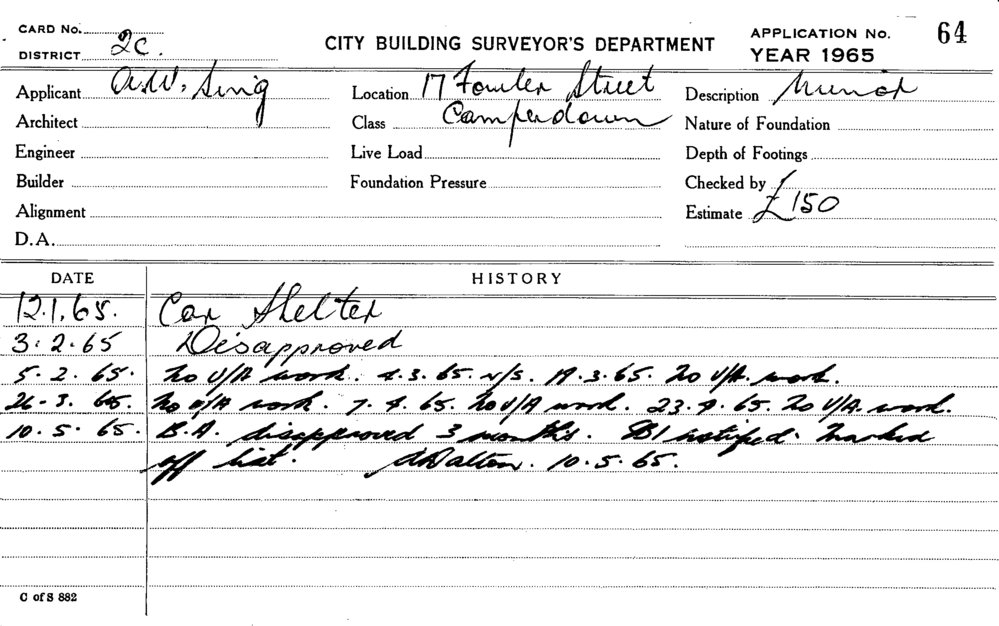 CARD No.
DISTRICT 2C.
CITY BUILDING SURVEYOR'S DEPARTMENT
APPLICATION No. 64
YEAR 1965
Applicant A.W. Sing
Location 17 Fowler Street
Description Minor
Architect
Class Camperdown
Nature of Foundation
Engineer
Live Load
Depth of Footings
Builder
Foundation Pressure
Checked by
Alignment
Estimate £150
D.A.
DATE HISTORY
12.1.65. Car Shelter
3.2.65 Disapproved
5.2.65. No U/A work. 4.3.65. N/S. 19.3.65. No U/A. work.
26-3.65. No U/A work. 7.4.65. No U/A work. 23.4.65. No U/A. work.
10.5.65. B.A. disapproved 3 months. notified. Marked
off list. Dalton. 10.5.65.
C of S 882